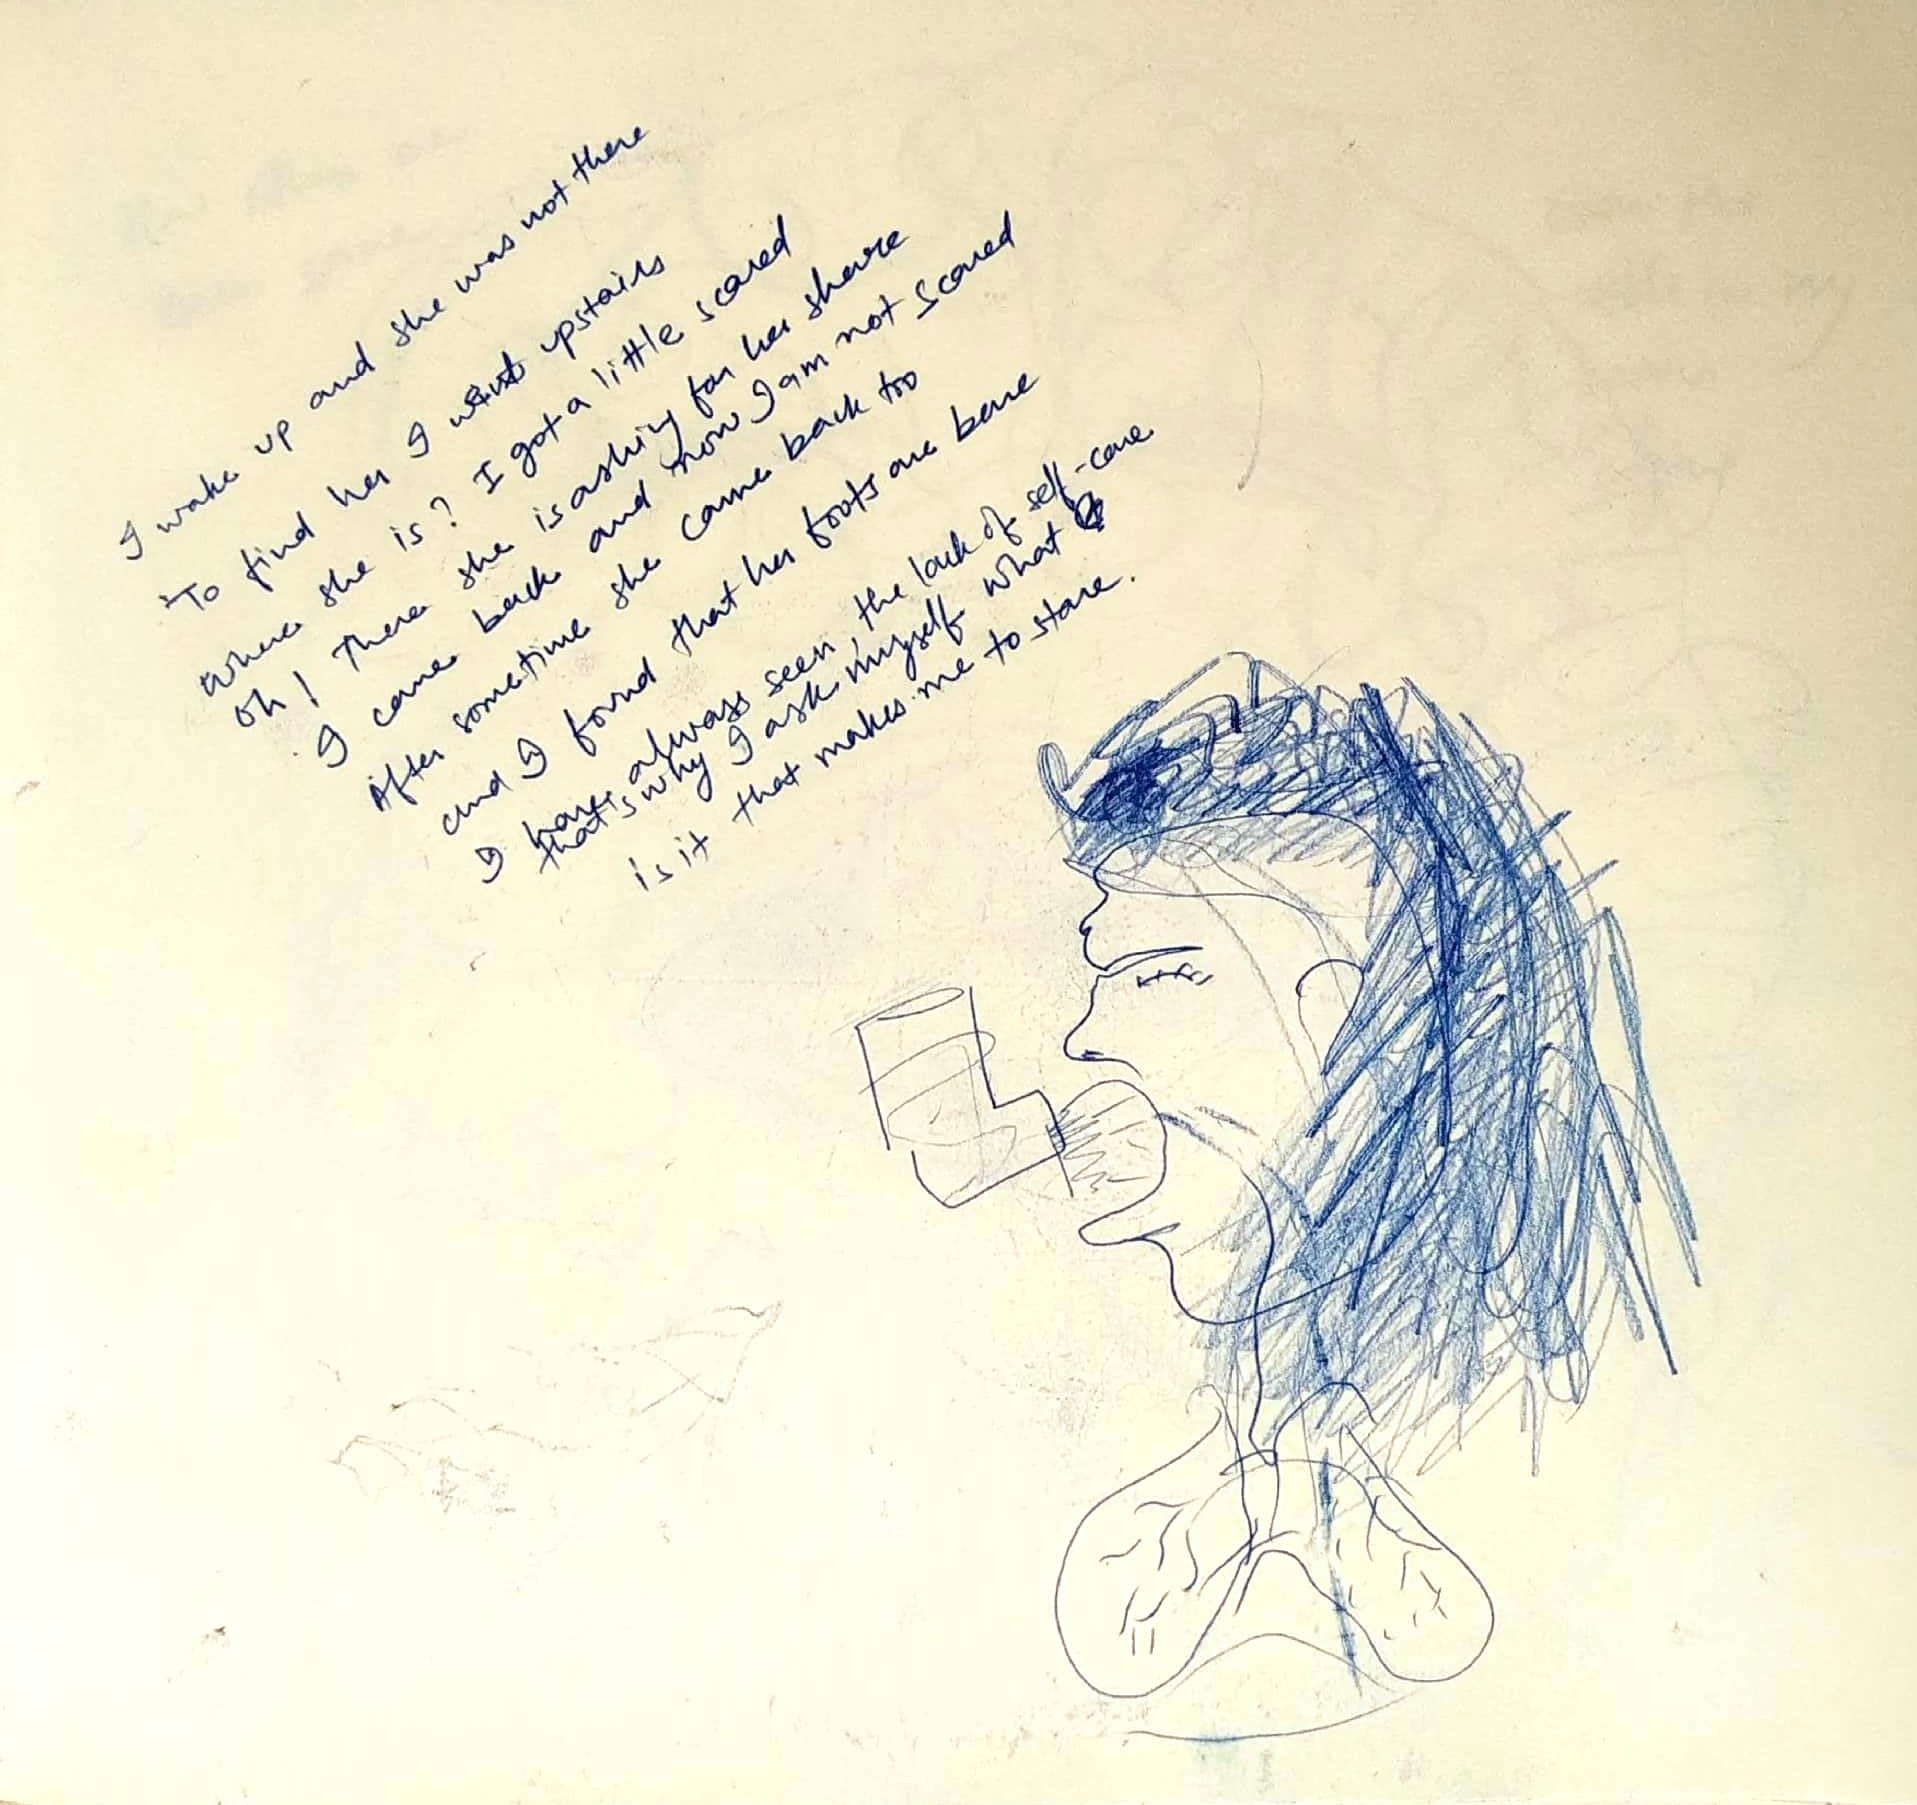 I wake up and she was not there
To find her I went upstairs
Where she is? I got a little scared
Oh! There she is asking for her share
I came back and now I am not scared
After sometime she came back too
and I found that her foots are bare
I have always seen, the lack of self-care
that's why I ask myself what
is it that makes me to stare.